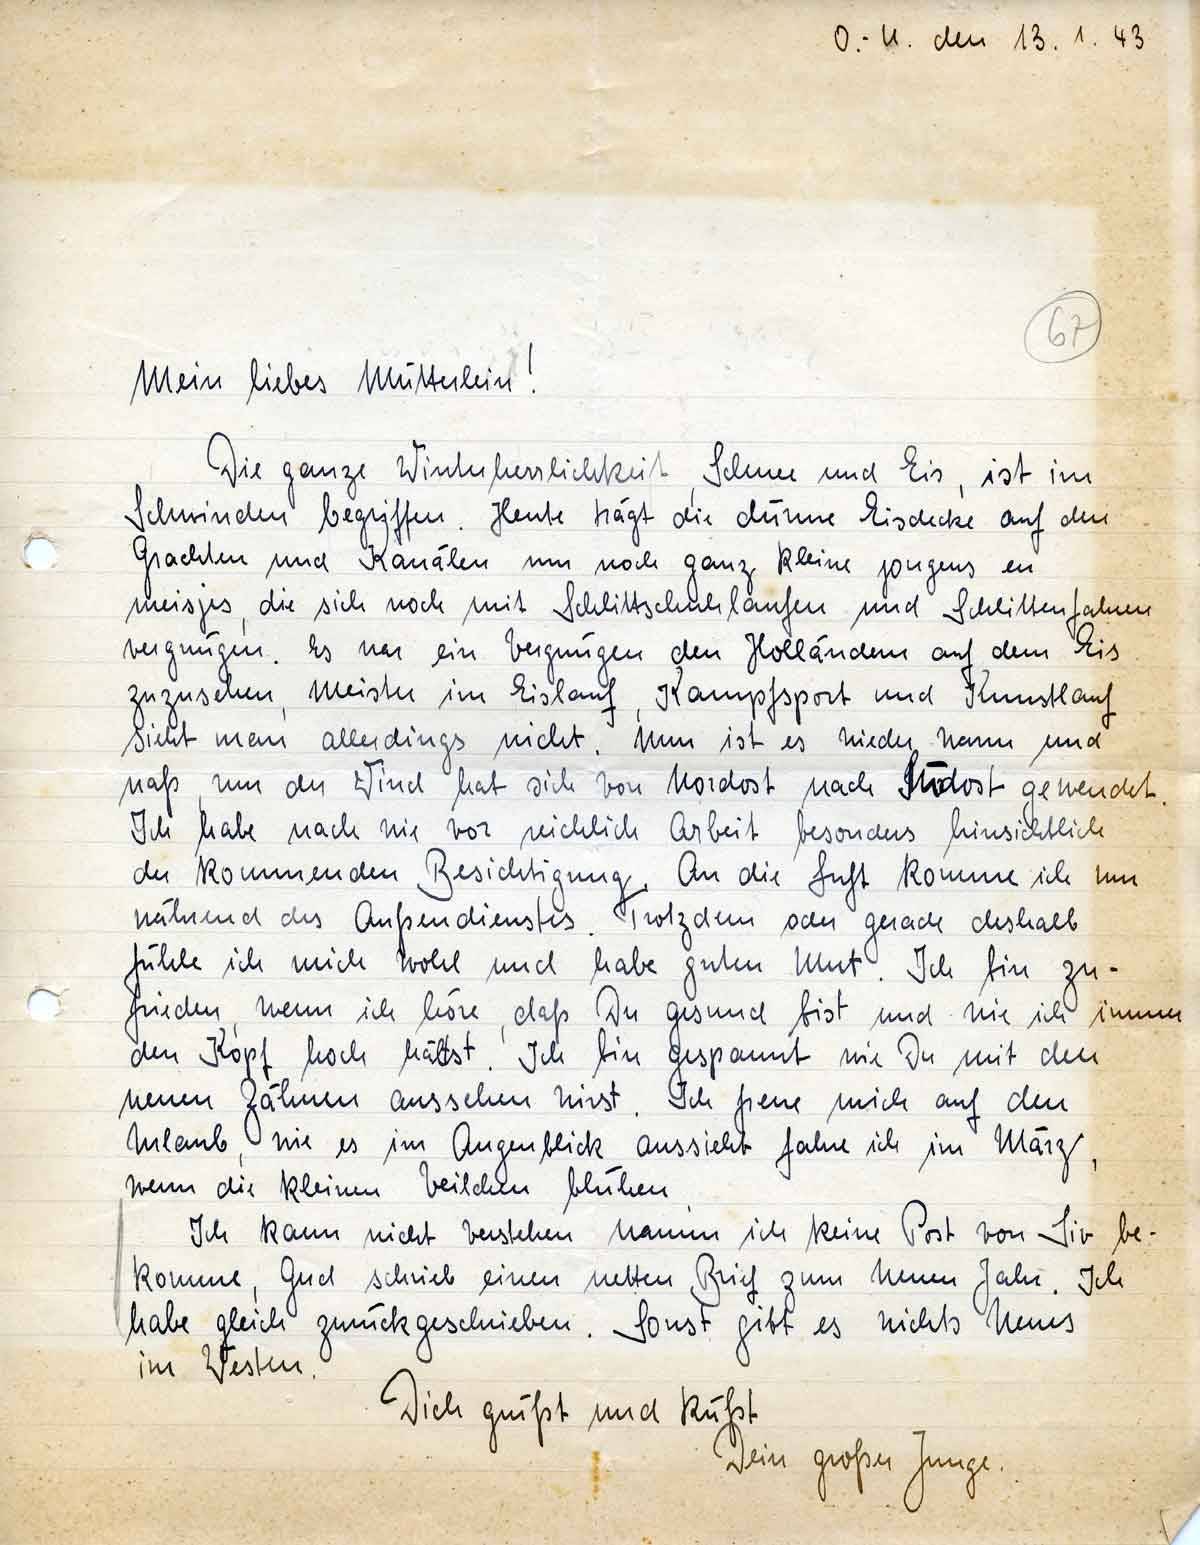 O.-U. den 13.1.43
67
Mein liebes Mütterlein!
Die ganze Winterherrlichkeit, Schnee und Eis, ist im
Schwinden begriffen. Heute trägt die dünne Eisdecke auf den
Grachten und Kanälen nur noch ganz kleine jongens en
meisjes, die sich noch mit Schlittschuhlaufen und Schlittenfahren
vergnügen. Es war ein Vergnügen den Holländern auf dem Eis
zuzusehen, Meister im Eislauf, Kampfsport und Kunstlauf
sieht man allerdings nicht. Nun ist es wieder warm und
naß, nur der Wind hat sich von Nordost nach Südost gewendet.
Ich habe nach wie vor reichlich Arbeit besonders hinsichtlich
der kommenden Besichtigung. An die Luft komme ich nur
während des Außendienstes. Trotzdem oder gerade deshalb
fühle ich mich wohl und habe guten Mut. Ich bin zu-
frieden, wenn ich höre, daß Du gesund bist und wie ich immer
den Kopf hoch hältst. Ich bin gespannt wie Du mit den
neuen Zähnen aussehen wirst. Ich freue mich auf den
Urlaub, wie es im Augenblick aussieht fahre ich im März,
wenn die kleinen Veilchen blühen.
Ich kann nicht verstehen warum ich keine Post von Siv be-
komme, Gud schrieb einen netten Brief zum Neuen Jahr. Ich
habe gleich zurückgeschrieben. Sonst gibt es nichts Neues
im Westen.
Dich grüßt und küßt
Dein großer Junge.